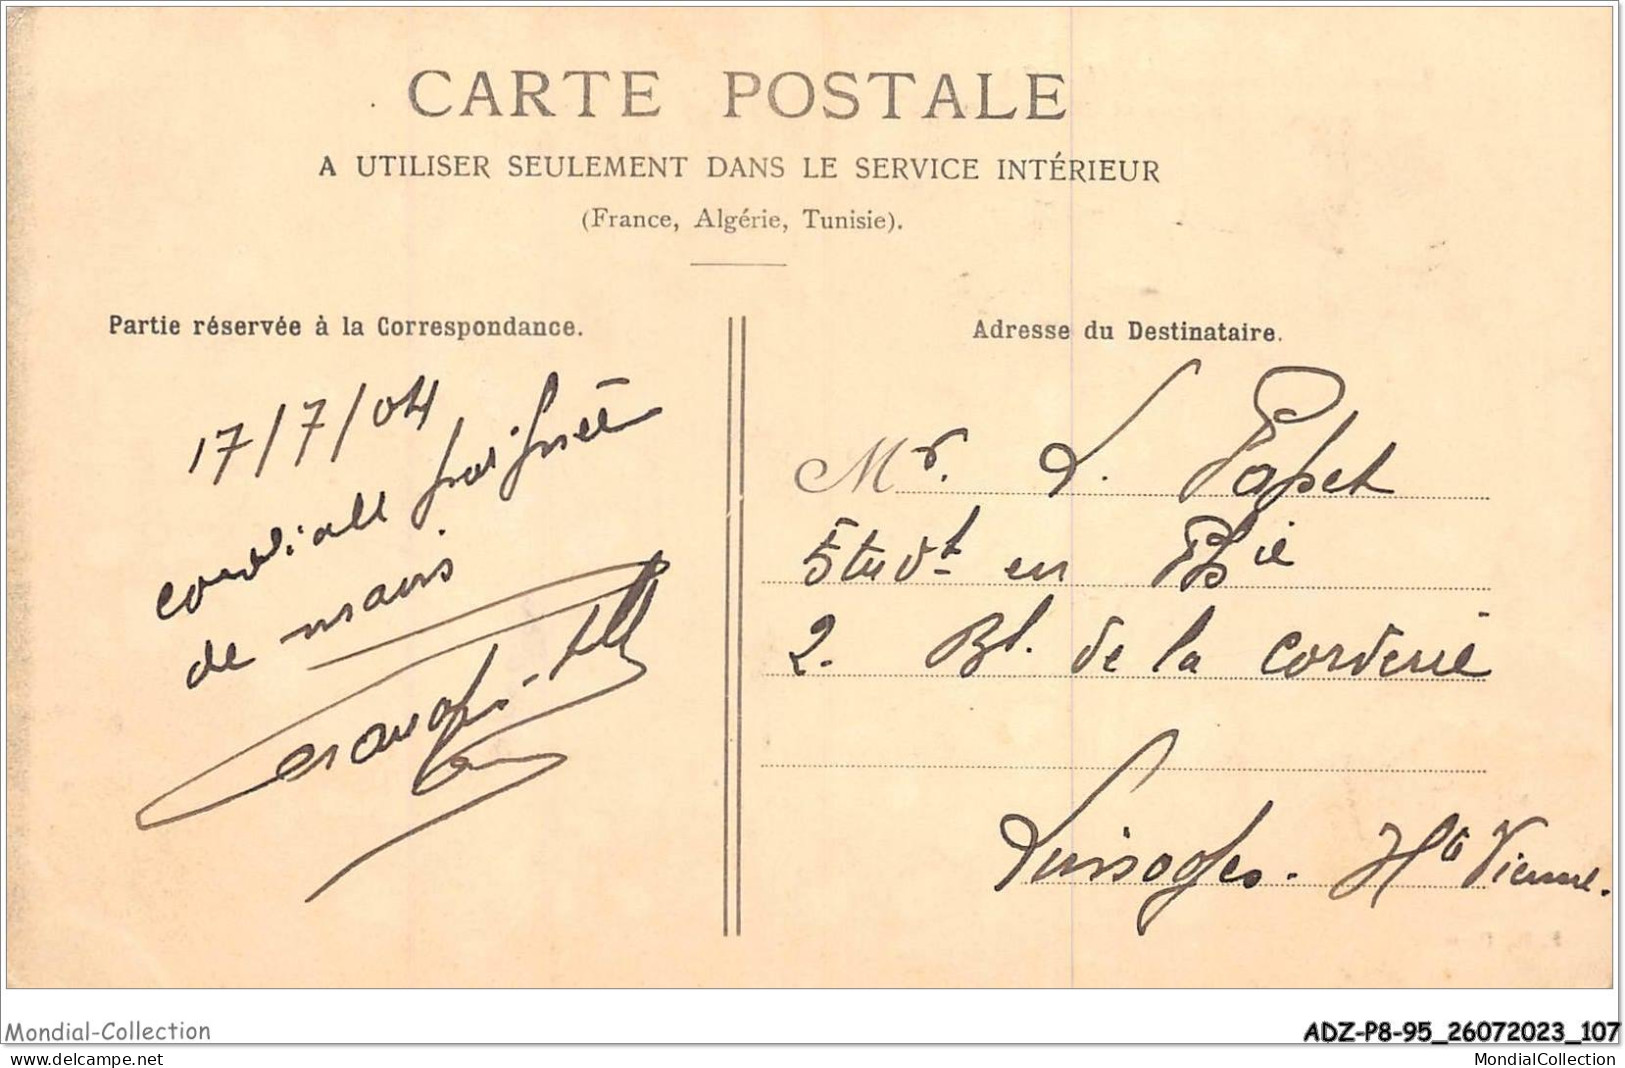 CARTE POSTALE
A UTILISER SEULEMENT DANS LE SERVICE INTÉRIEUR
(France, Algérie, Tunisie).
Partie réservée à la Correspondance.
17/7/04
cordiale poignée
de mains
Adresse du Destinataire.
Mr. L. Papet
Etudt en Phie
2. Bd. de la Corderie
Limoges. Hte Vienne.
Mondial-Collection
ADZ-P8-95_26072023_107
www.delcampe.net
MondialCollection